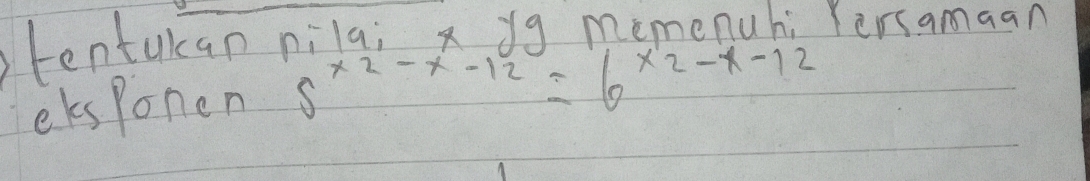 ) tentukan nilai x yg memenuhi Persamaan
eksponen 5^x2-x-12 = 6^x2-x-12